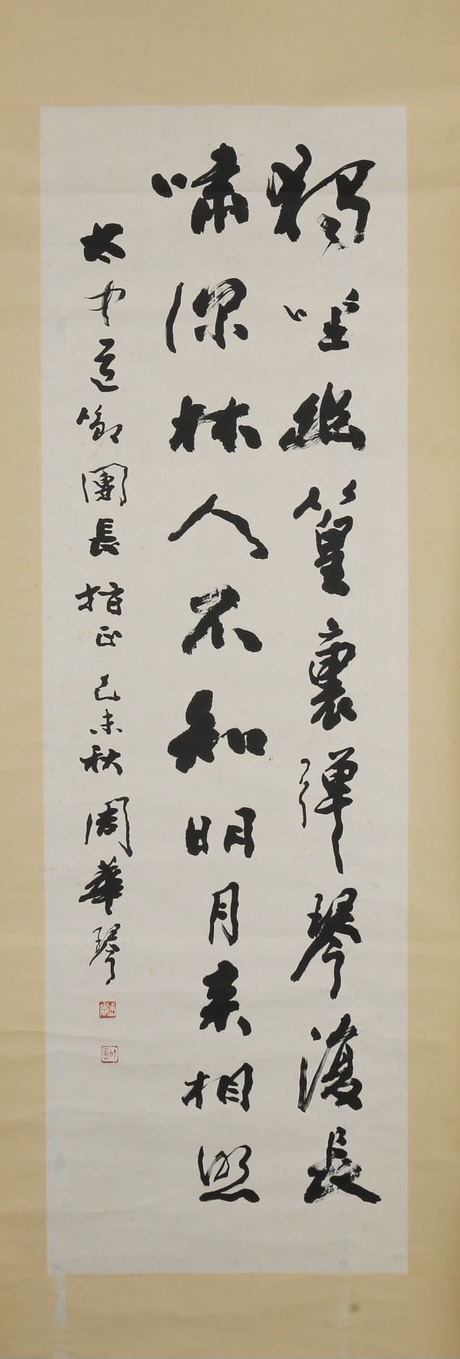 獨坐幽篁裏彈琴復長
嘯深林人不知明月来相照
太中道御團長指正己未秋周華琴